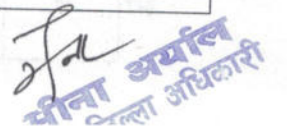 मीना अर्याल
जिल्ला अधिकारी